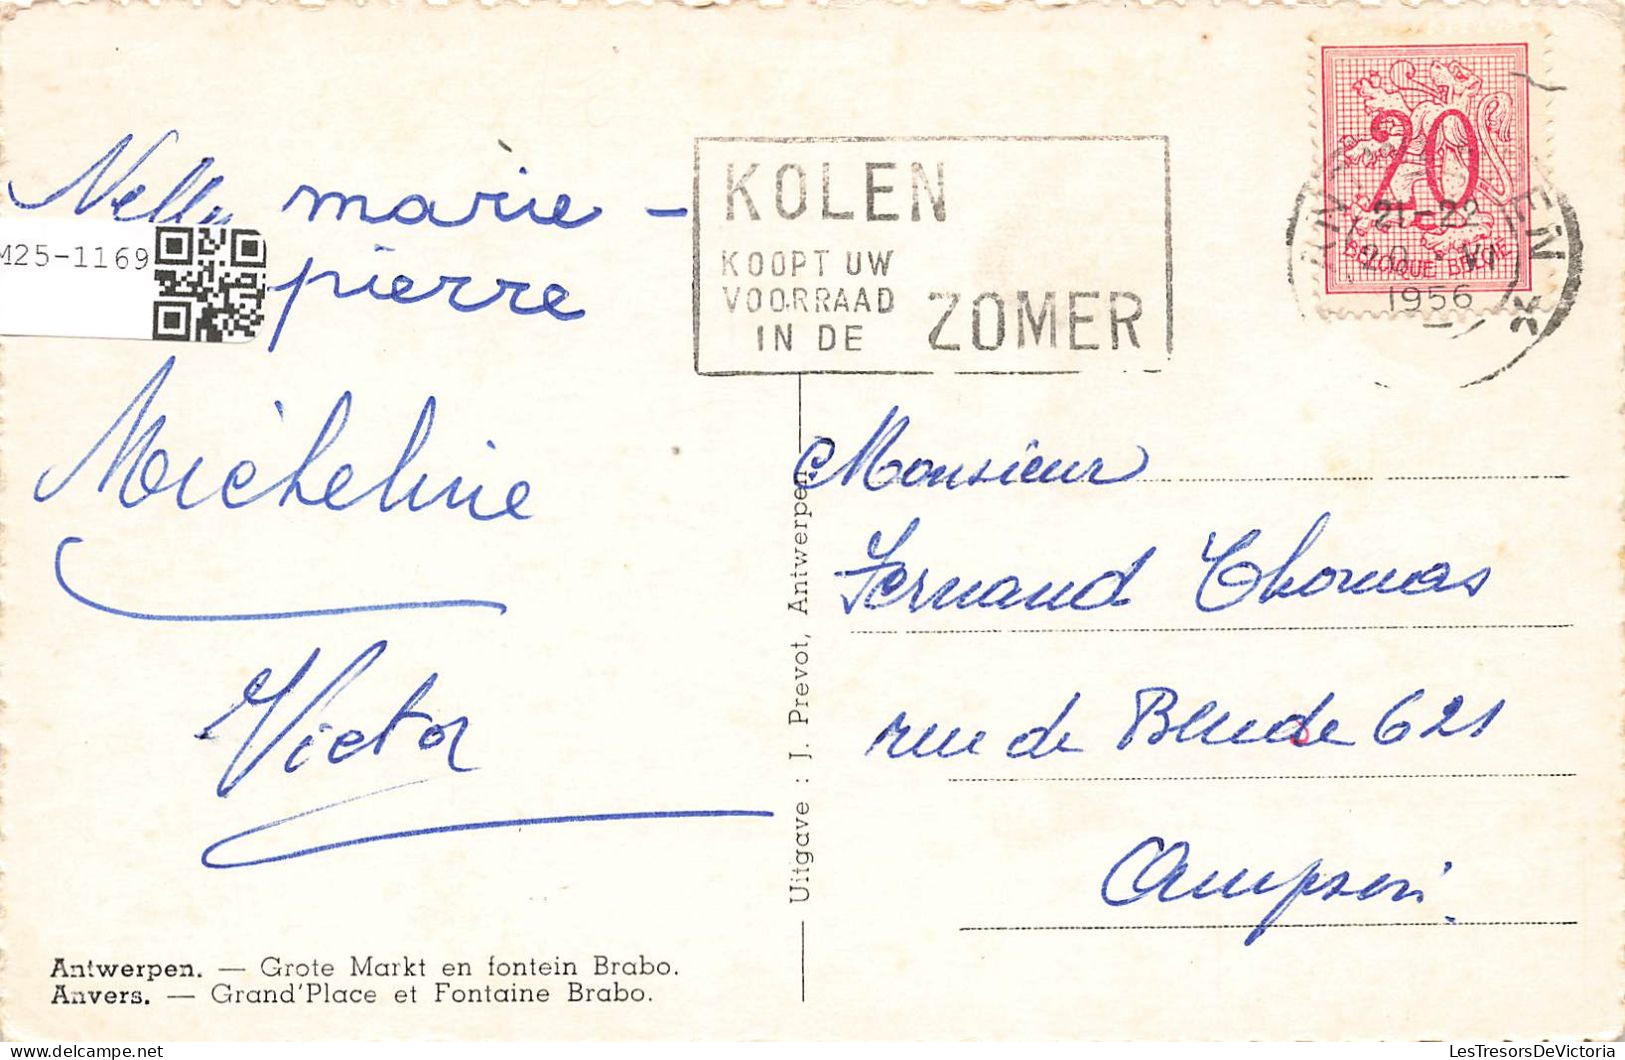 Nelly marie -
pierre
Micheline
Victor
M25-1169
KOLEN
KOOPT UW
VOORRAAD
IN DE ZOMER
20
BELGIQUE BELGIE
21-22
VI
1956
Monsieur
Fernand Thomas
rue de 621
Uitgave : J. Prevot, Antwerpen.
Antwerpen. — Grote Markt en fontein Brabo.
Anvers. — Grand'Place et Fontaine Brabo.
LesTresorsDeVictoria